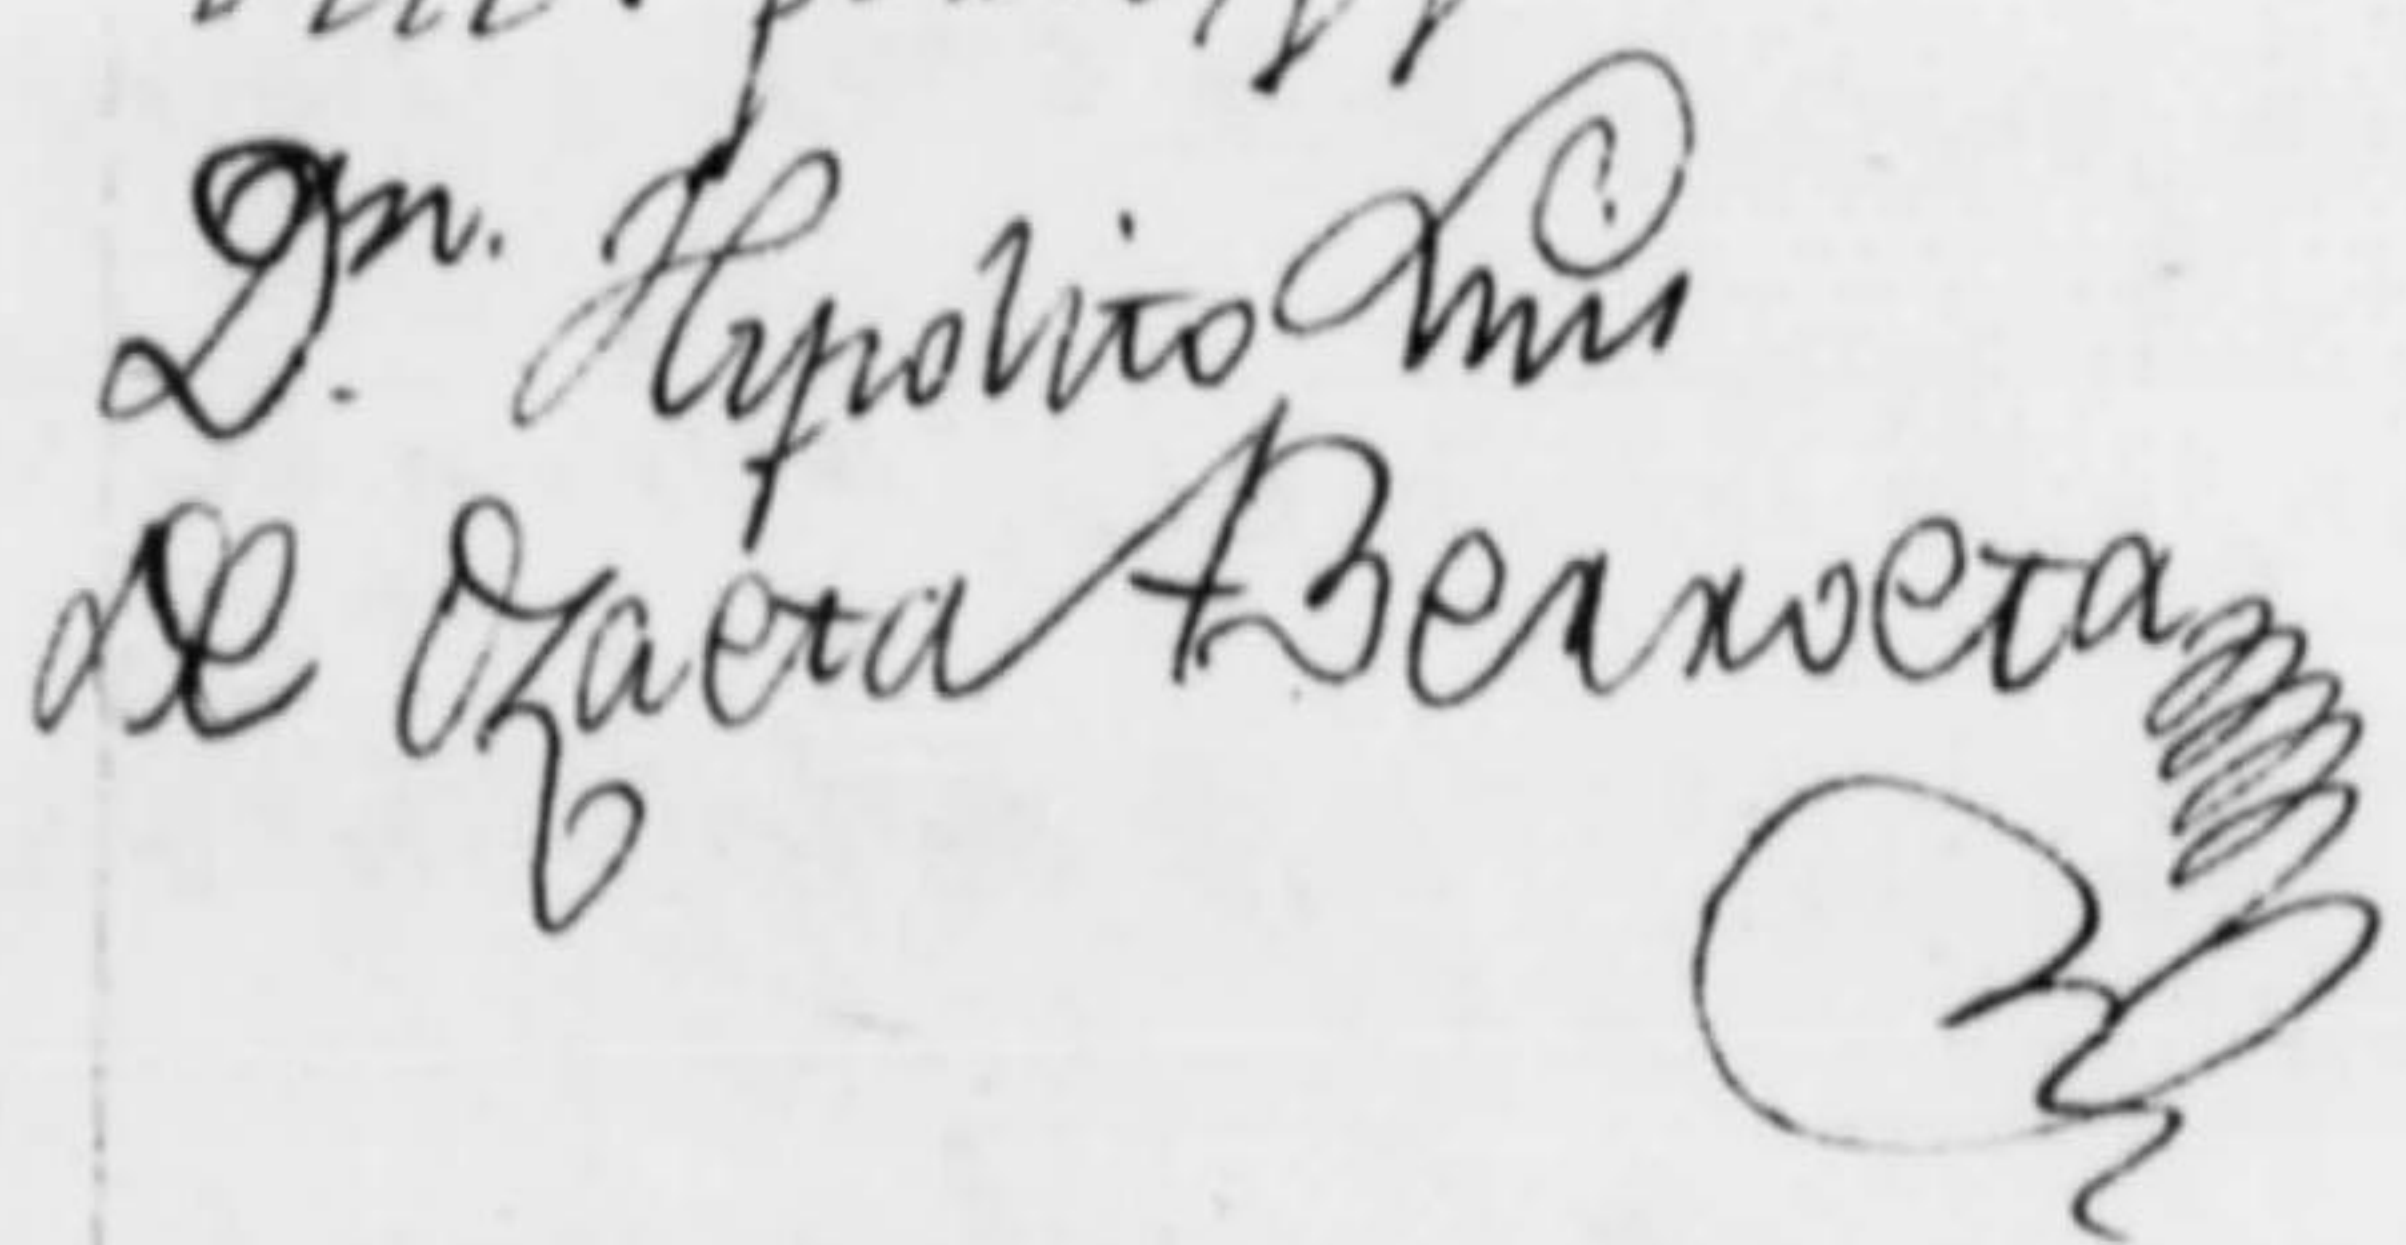 Dn. Hypolito
de Ozaeta Berroeta